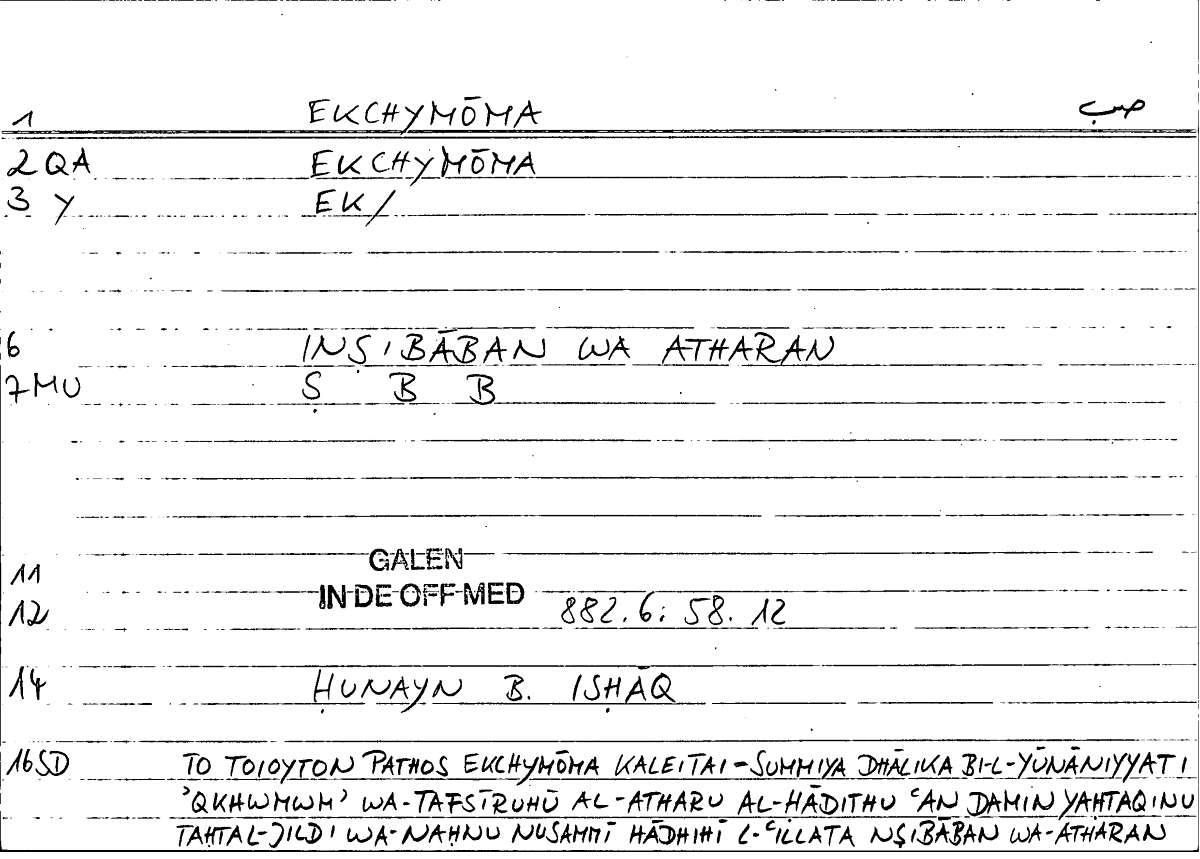 1 EKCHYMŌMA صب
2 QA EKCHYMŌMA
3 Y EK/
6 INṢIBĀBAN WA ATHARAN
7 MU Ṣ B B
11 GALEN
12 IN DE OFF MED 882.6: 58.12
14 ḤUNAYN B. ISḤĀQ
16 SD TO TOIOYTON PATHOS EKCHYMŌMA KALEITAI - SUMMIYA DHĀLIKA BI-L-YŪNĀNIYYATI
ʾQKHWMWMʾ WA-TAFSĪRUHŪ AL-ATHARU AL-ḤĀDITHU ʿAN DAMIN YAḤTAQINU
TAḤTAL-JILDI WA-NAḤNU NUSAMMĪ HĀDHIHĪ L-ʿILLATA NṢIBĀBAN WA-ATHARAN